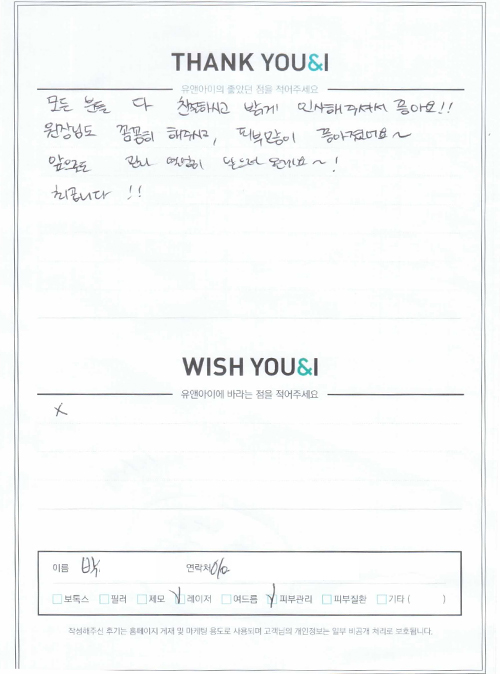 THANK YOU&I
유앤아이의 좋았던 점을 적어주세요
모든 분들 다 친절하시고 밝게 인사해주셔서 좋아요!!
원장님도 꼼꼼히 해주시고, 피부많이 좋아졌어요~
앞으로도 관리 열심히 받으러 올게요~!
최곱니다 !!
WISH YOU&I
유앤아이에 바라는 점을 적어주세요
X
이름 박. 연락처 010.
보톡스 필러 제모 레이저 여드름 피부관리 피부질환 기타 ( )
작성해주신 후기는 홈페이지 게재 및 마케팅 용도로 사용되며 고객님의 개인정보는 일부 비공개 처리로 보호됩니다.